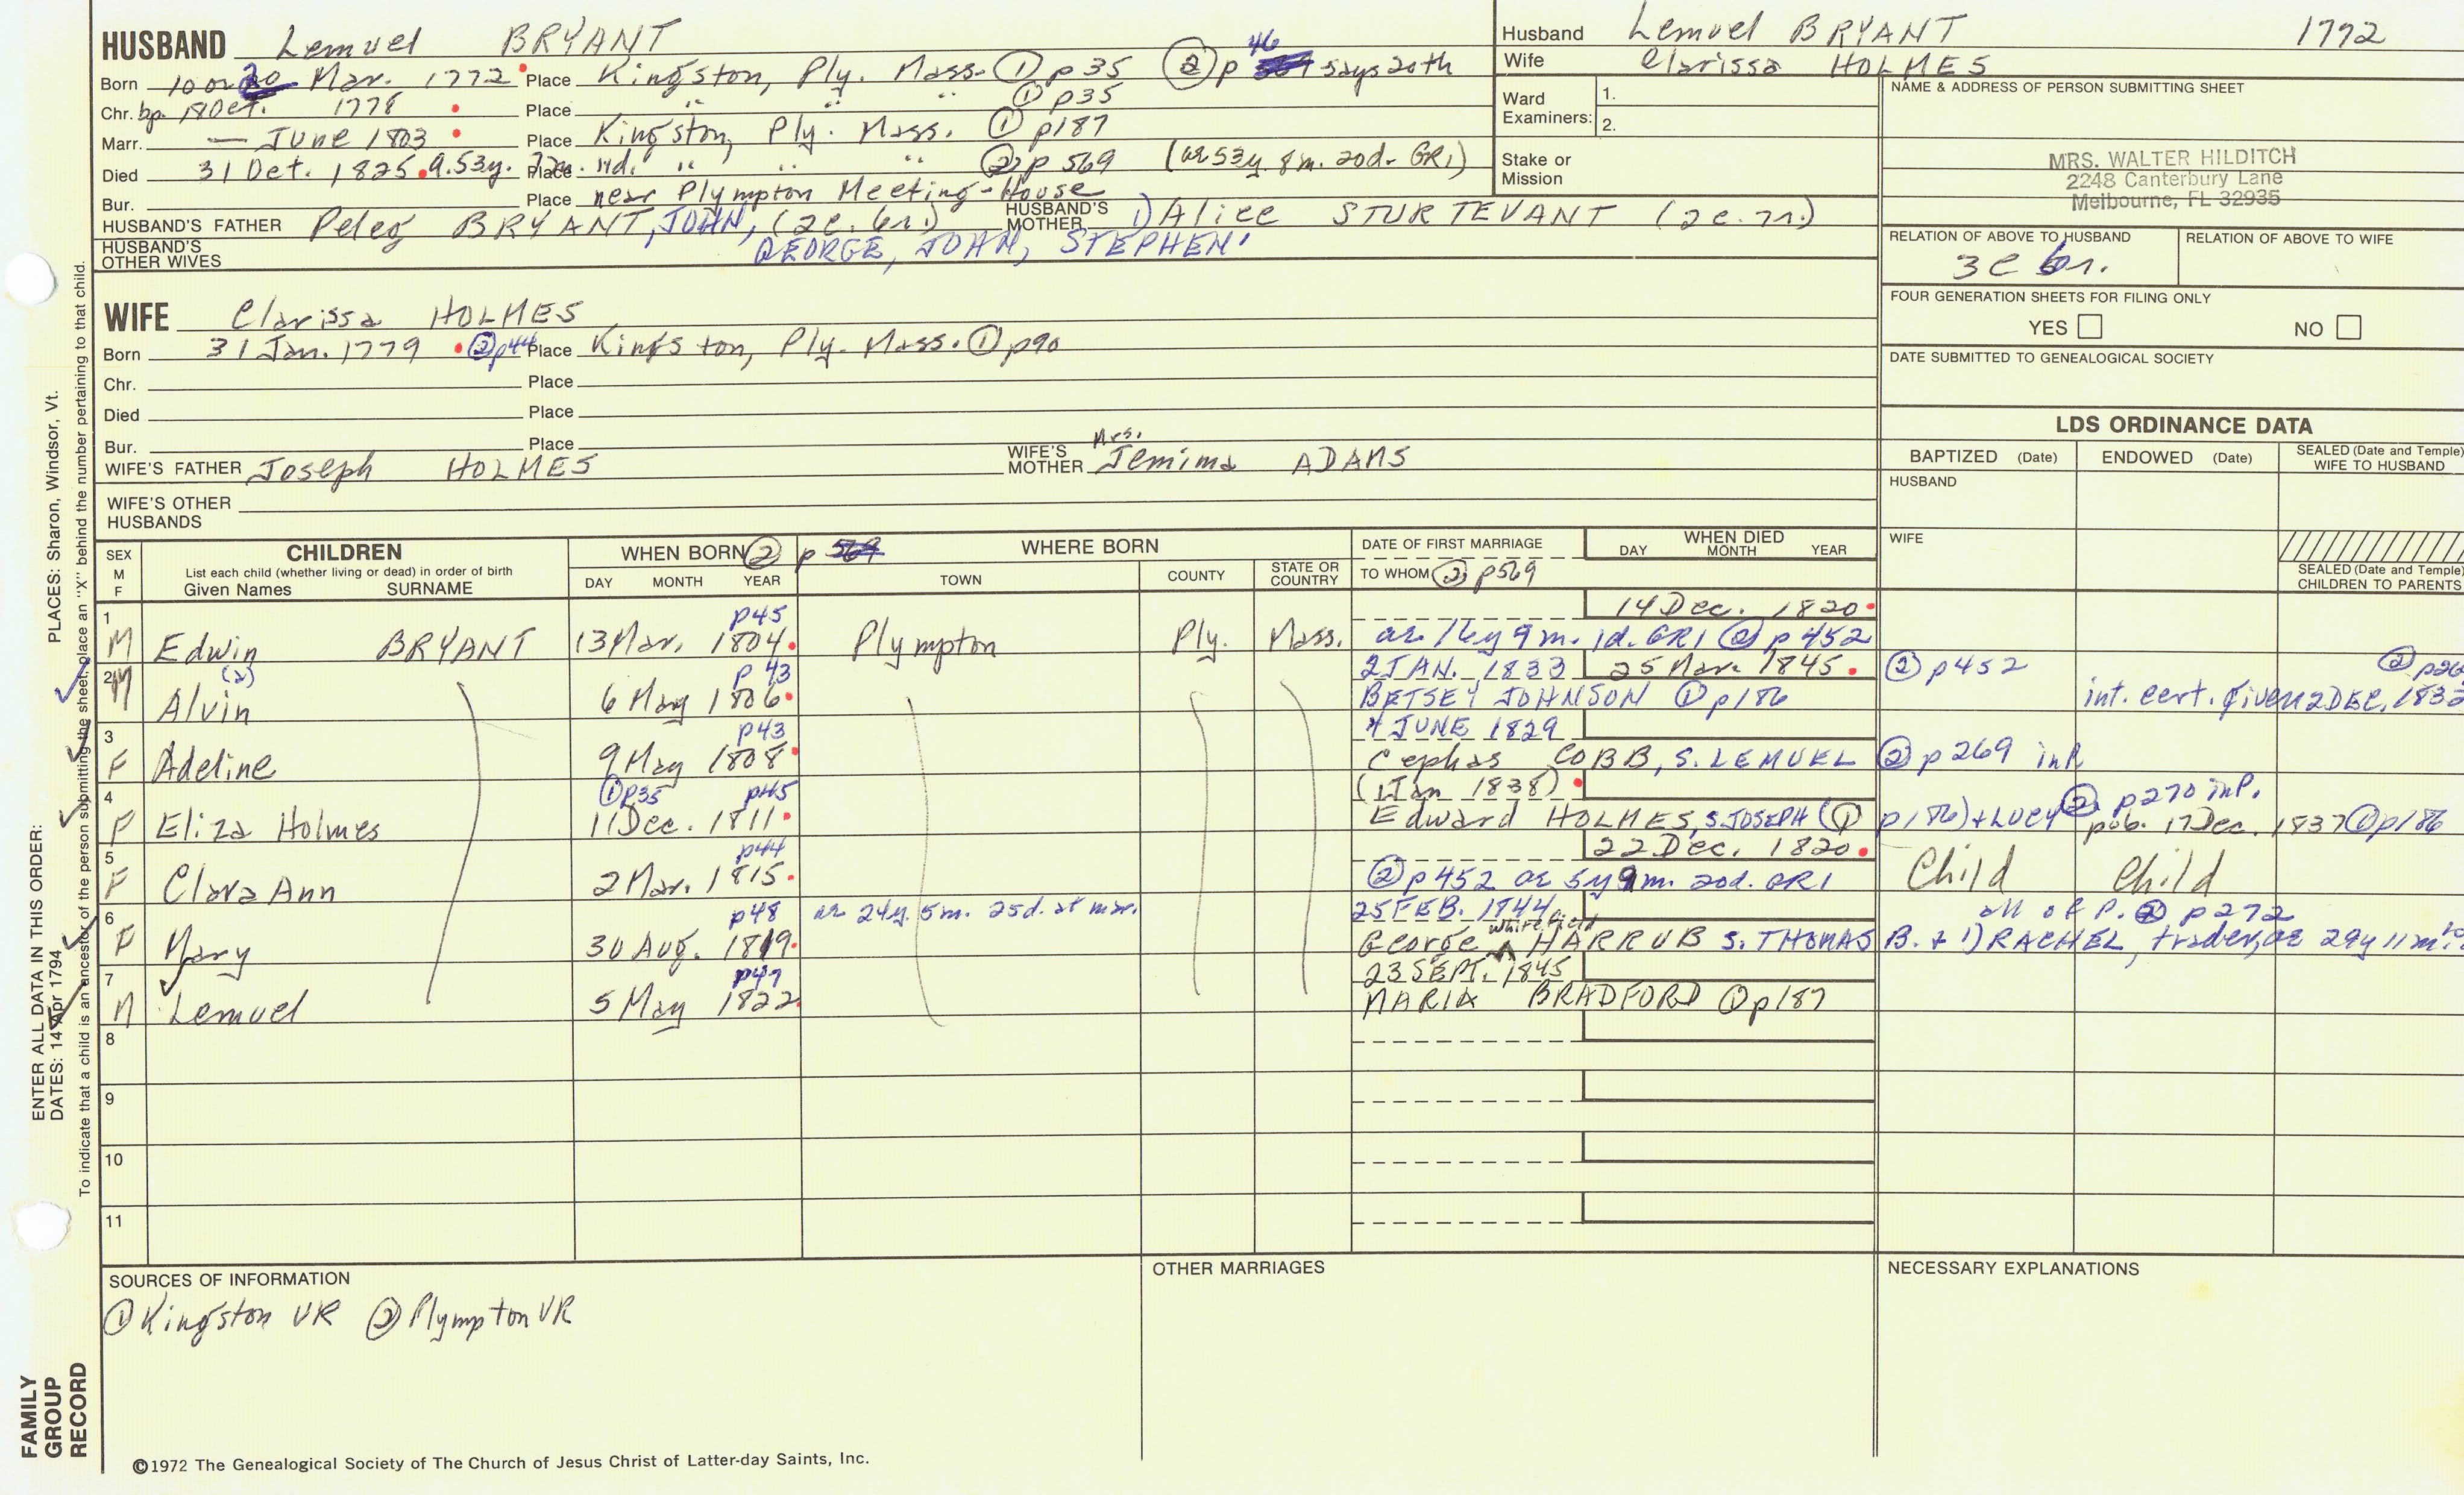 HUSBAND Lemuel BRYANT
Born 10 or 20 Mar. 1772 Place Kingston, Ply. Mass. ① p35 ② p 46 says 20th
Chr. bp. 18 Oct. 1778 Place " " " ① p35
Marr. — June 1803 Place Kingston, Ply. Mass. ① p187
Died 31 Oct. 1825 a. 53y. Place " " " ② p 569 (ae 53y. 8m. 20d. GR1)
Bur. Place near Plympton Meeting-House
HUSBAND'S FATHER Peleg BRYANT, JOHN, (2c. 6r.) HUSBAND'S MOTHER 1) Alice STURTEVANT (2c. 7r.)
HUSBAND'S OTHER WIVES GEORGE, JOHN, STEPHEN
Husband Lemuel BRYANT 1772
Wife Clarissa HOLMES
Ward Examiners: 1.
2.
Stake or Mission
NAME & ADDRESS OF PERSON SUBMITTING SHEET
MRS. WALTER HILDITCH
2248 Canterbury Lane
Melbourne, FL 32935
RELATION OF ABOVE TO HUSBAND RELATION OF ABOVE TO WIFE
3c 6r.
FOUR GENERATION SHEETS FOR FILING ONLY
YES NO
DATE SUBMITTED TO GENEALOGICAL SOCIETY
WIFE Clarissa HOLMES
Born 31 Jan. 1779 ② p44 Place Kingston, Ply. Mass. ① p90
Chr. Place
Died Place
Bur. Place
WIFE'S FATHER Joseph HOLMES WIFE'S MOTHER Mrs. Jemima ADAMS
WIFE'S OTHER HUSBANDS
LDS ORDINANCE DATA
BAPTIZED (Date) ENDOWED (Date) SEALED (Date and Temple) WIFE TO HUSBAND
HUSBAND
WIFE
SEALED (Date and Temple) CHILDREN TO PARENTS
SEX M F CHILDREN WHEN BORN ② p 569 WHERE BORN DATE OF FIRST MARRIAGE WHEN DIED
List each child (whether living or dead) in order of birth
Given Names SURNAME DAY MONTH YEAR TOWN COUNTY STATE OR COUNTRY TO WHOM ② p569 DAY MONTH YEAR
1 p45 14 Dec. 1820
M Edwin BRYANT 13 Mar. 1804 Plympton Ply. Mass. ae. 16y 9m. 1d. GR1 ② p 452
2 (2) p 43 2 JAN. 1833 25 Mar. 1845 ② p452
M Alvin 6 May 1806 BETSEY JOHNSON ① p186 int. cert. given 2 DEC. 1832
3 p43 4 JUNE 1829
F Adeline 9 May 1808 Cephas COBB, S. LEMUEL ② p269 in P.
4 ① p35 p45 (1 Jan 1838) ② p270 in P.
F Eliza Holmes 11 Dec. 1811 Edward HOLMES, S. JOSEPH (① p186) + LUCY pub. 17 Dec. 1837 ① p186
5 p44 22 Dec. 1820
F Clara Ann 2 Mar. 1815 ② p452 ae 5y 9m. 20d. GR1 Child Child
6 p48 ae 24y. 5m. 25d. at mar. 25 FEB. 1844 all of P. ② p272
F Mary 30 Aug. 1819 George Whitefield HARRUB S. THOMAS B. + 1) RACHEL, trader, ae 29y 11m.
7 p47 23 SEPT. 1845
M Lemuel 5 May 1822 MARIA BRADFORD ① p187
8
9
10
11
SOURCES OF INFORMATION
① Kingston VR ② Plympton VR
OTHER MARRIAGES
NECESSARY EXPLANATIONS
©1972 The Genealogical Society of The Church of Jesus Christ of Latter-day Saints, Inc.
FAMILY GROUP RECORD
ENTER ALL DATA IN THIS ORDER:
DATES: 14 Apr 1794
PLACES: Sharon, Windsor, Vt.
To indicate that a child is an ancestor of the person submitting the sheet, place an "X" behind the number pertaining to that child.